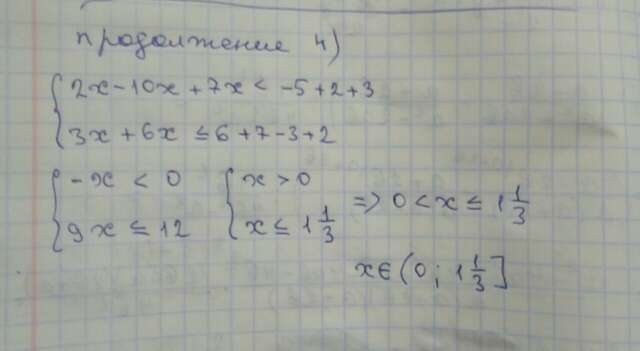 продолжение 4)
{ 2x-10x+7x < -5+2+3
{ 3x+6x ≤ 6+7-3+2
{ -x < 0 { x > 0
{ 9x ≤ 12 { x ≤ 1 1/3 => 0 < x ≤ 1 1/3
x ∈ (0; 1 1/3]